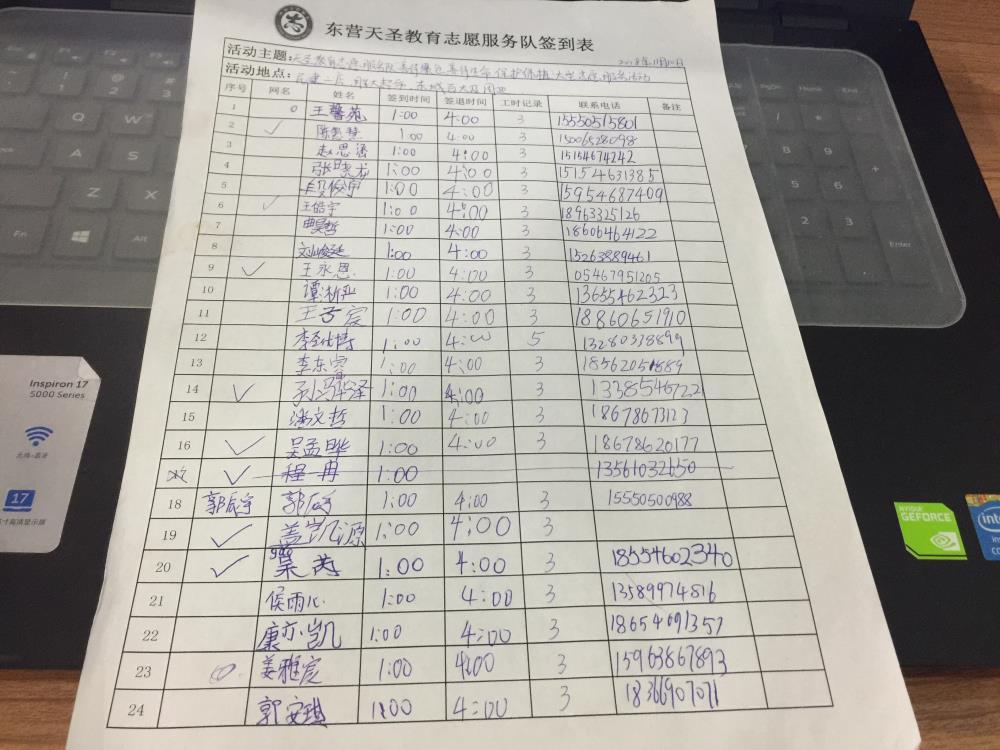 志
东营天圣教育志愿服务队签到表
活动主题:天圣教育志愿服务队
活动地点:
序号 网名 姓名 签到时间 签退时间 工时记录 联系电话 备注
1 0 王馨苑 1:00 4:00 3 15550515801
2 ✓ 陈思慧 1:00 4:00 3 15006528098
3 赵思涵 1:00 4:00 3 15154674242
4 张晓龙 1:00 4:00 3 15154631385
5 段俊宇 1:00 4:00 3 15954687409
6 ✓ 王皓宇 1:00 4:00 3 18963325126
7 曲昊哲 1:00 4:00 3 18606464122
8 刘峻延 1:00 4:00 3 15263889461
9 ✓ 王永恩 1:00 4:00 3 05467951205
10 谭淅严 1:00 4:00 3 13655462323
11 王子宸 1:00 4:00 3 18860651910
12 1:00 4:00 5 13280338899
13 李东 1:00 4:00 3 18562051889
14 ✓ 1:00 4:00 3 13385467221
15 潘文哲 1:00 4:00 3 18678673123
16 ✓ 吴孟晔 1:00 4:00 3 18678620177
✓ 程冉 1:00 13561032650
18 郭辰宇 郭辰宇 1:00 4:00 3 15550500988
19 ✓ 盖凯源 1:00 4:00 3
20 ✓ 1:00 4:00 3 18554602340
21 侯雨心 1:00 4:00 3 13589974816
22 康亦凯 1:00 4:00 3 18654691357
23 0 姜雅宸 1:00 4:00 3 15963867893
24 郭安琪 1:00 4:00 3 18366907071
Fn
Alt
Enter
Inspiron 17
5000 Series
17
NVIDIA
GEFORCE